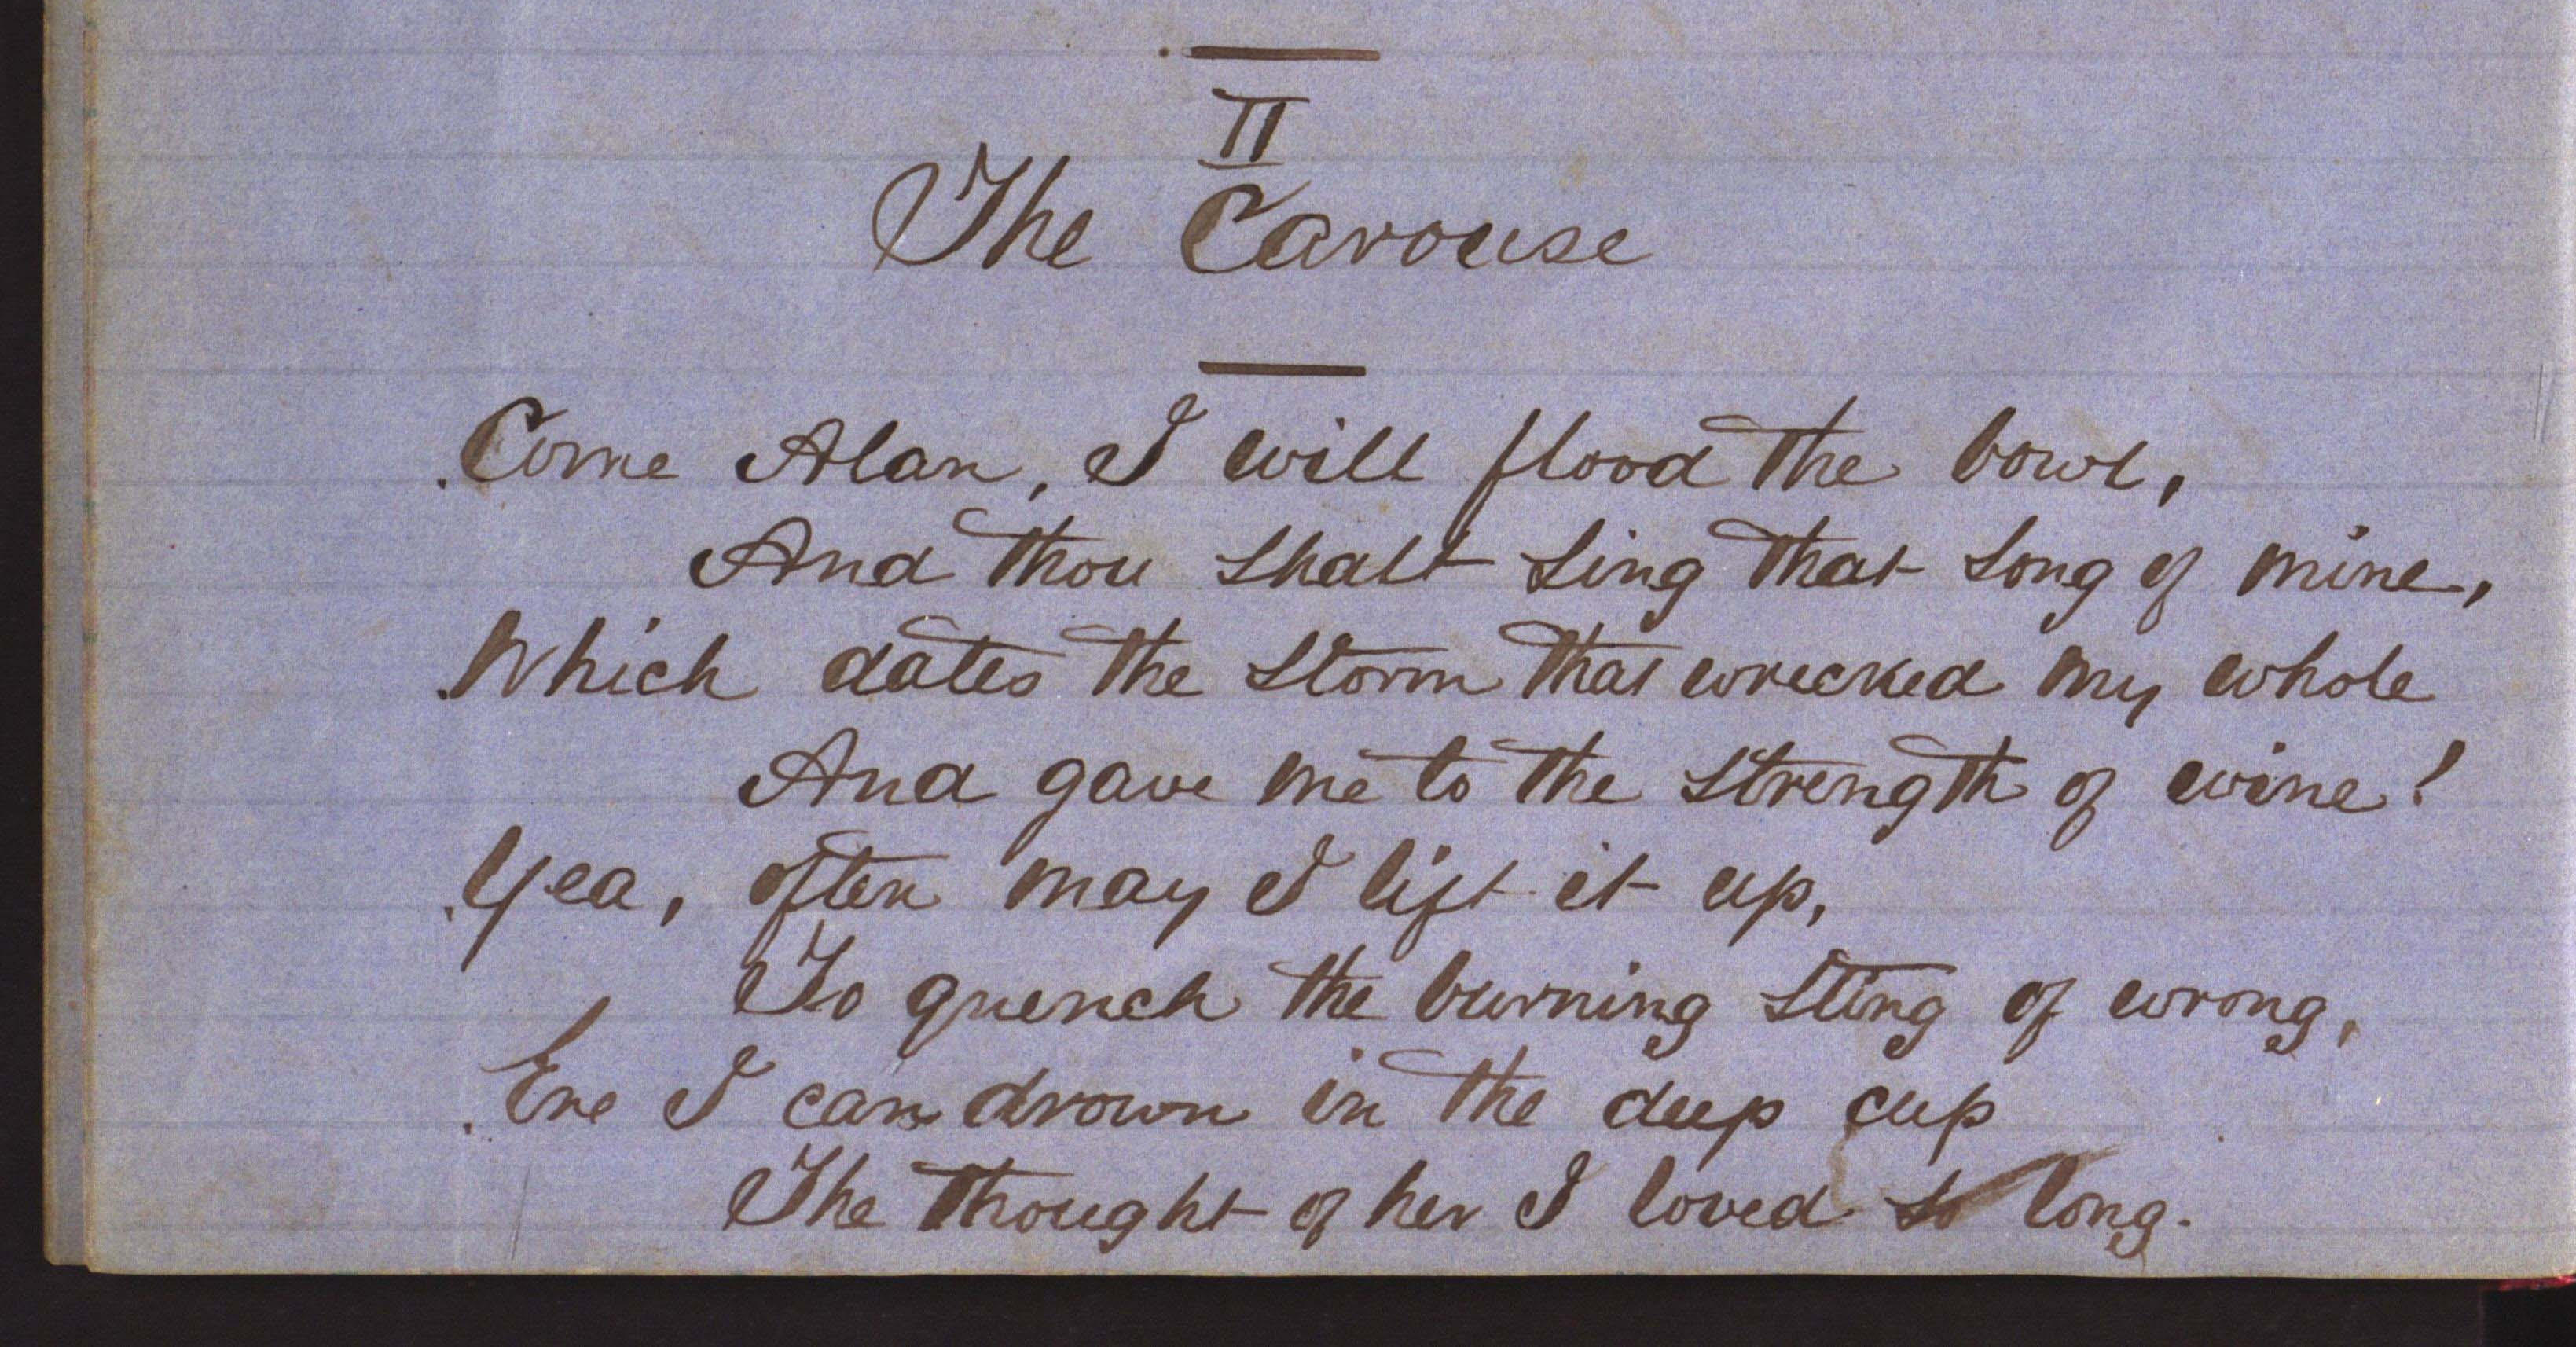 II
The Carouse
Come Alan, I will flood the bowl,
And thou shalt sing that song of mine,
Which dates the storm that wrecked my whole
And gave me to the strength of wine!
Yea, often may I lift it up,
To quench the burning sting of wrong,
Ere I can drown in the deep cup
The thought of her I loved so long.